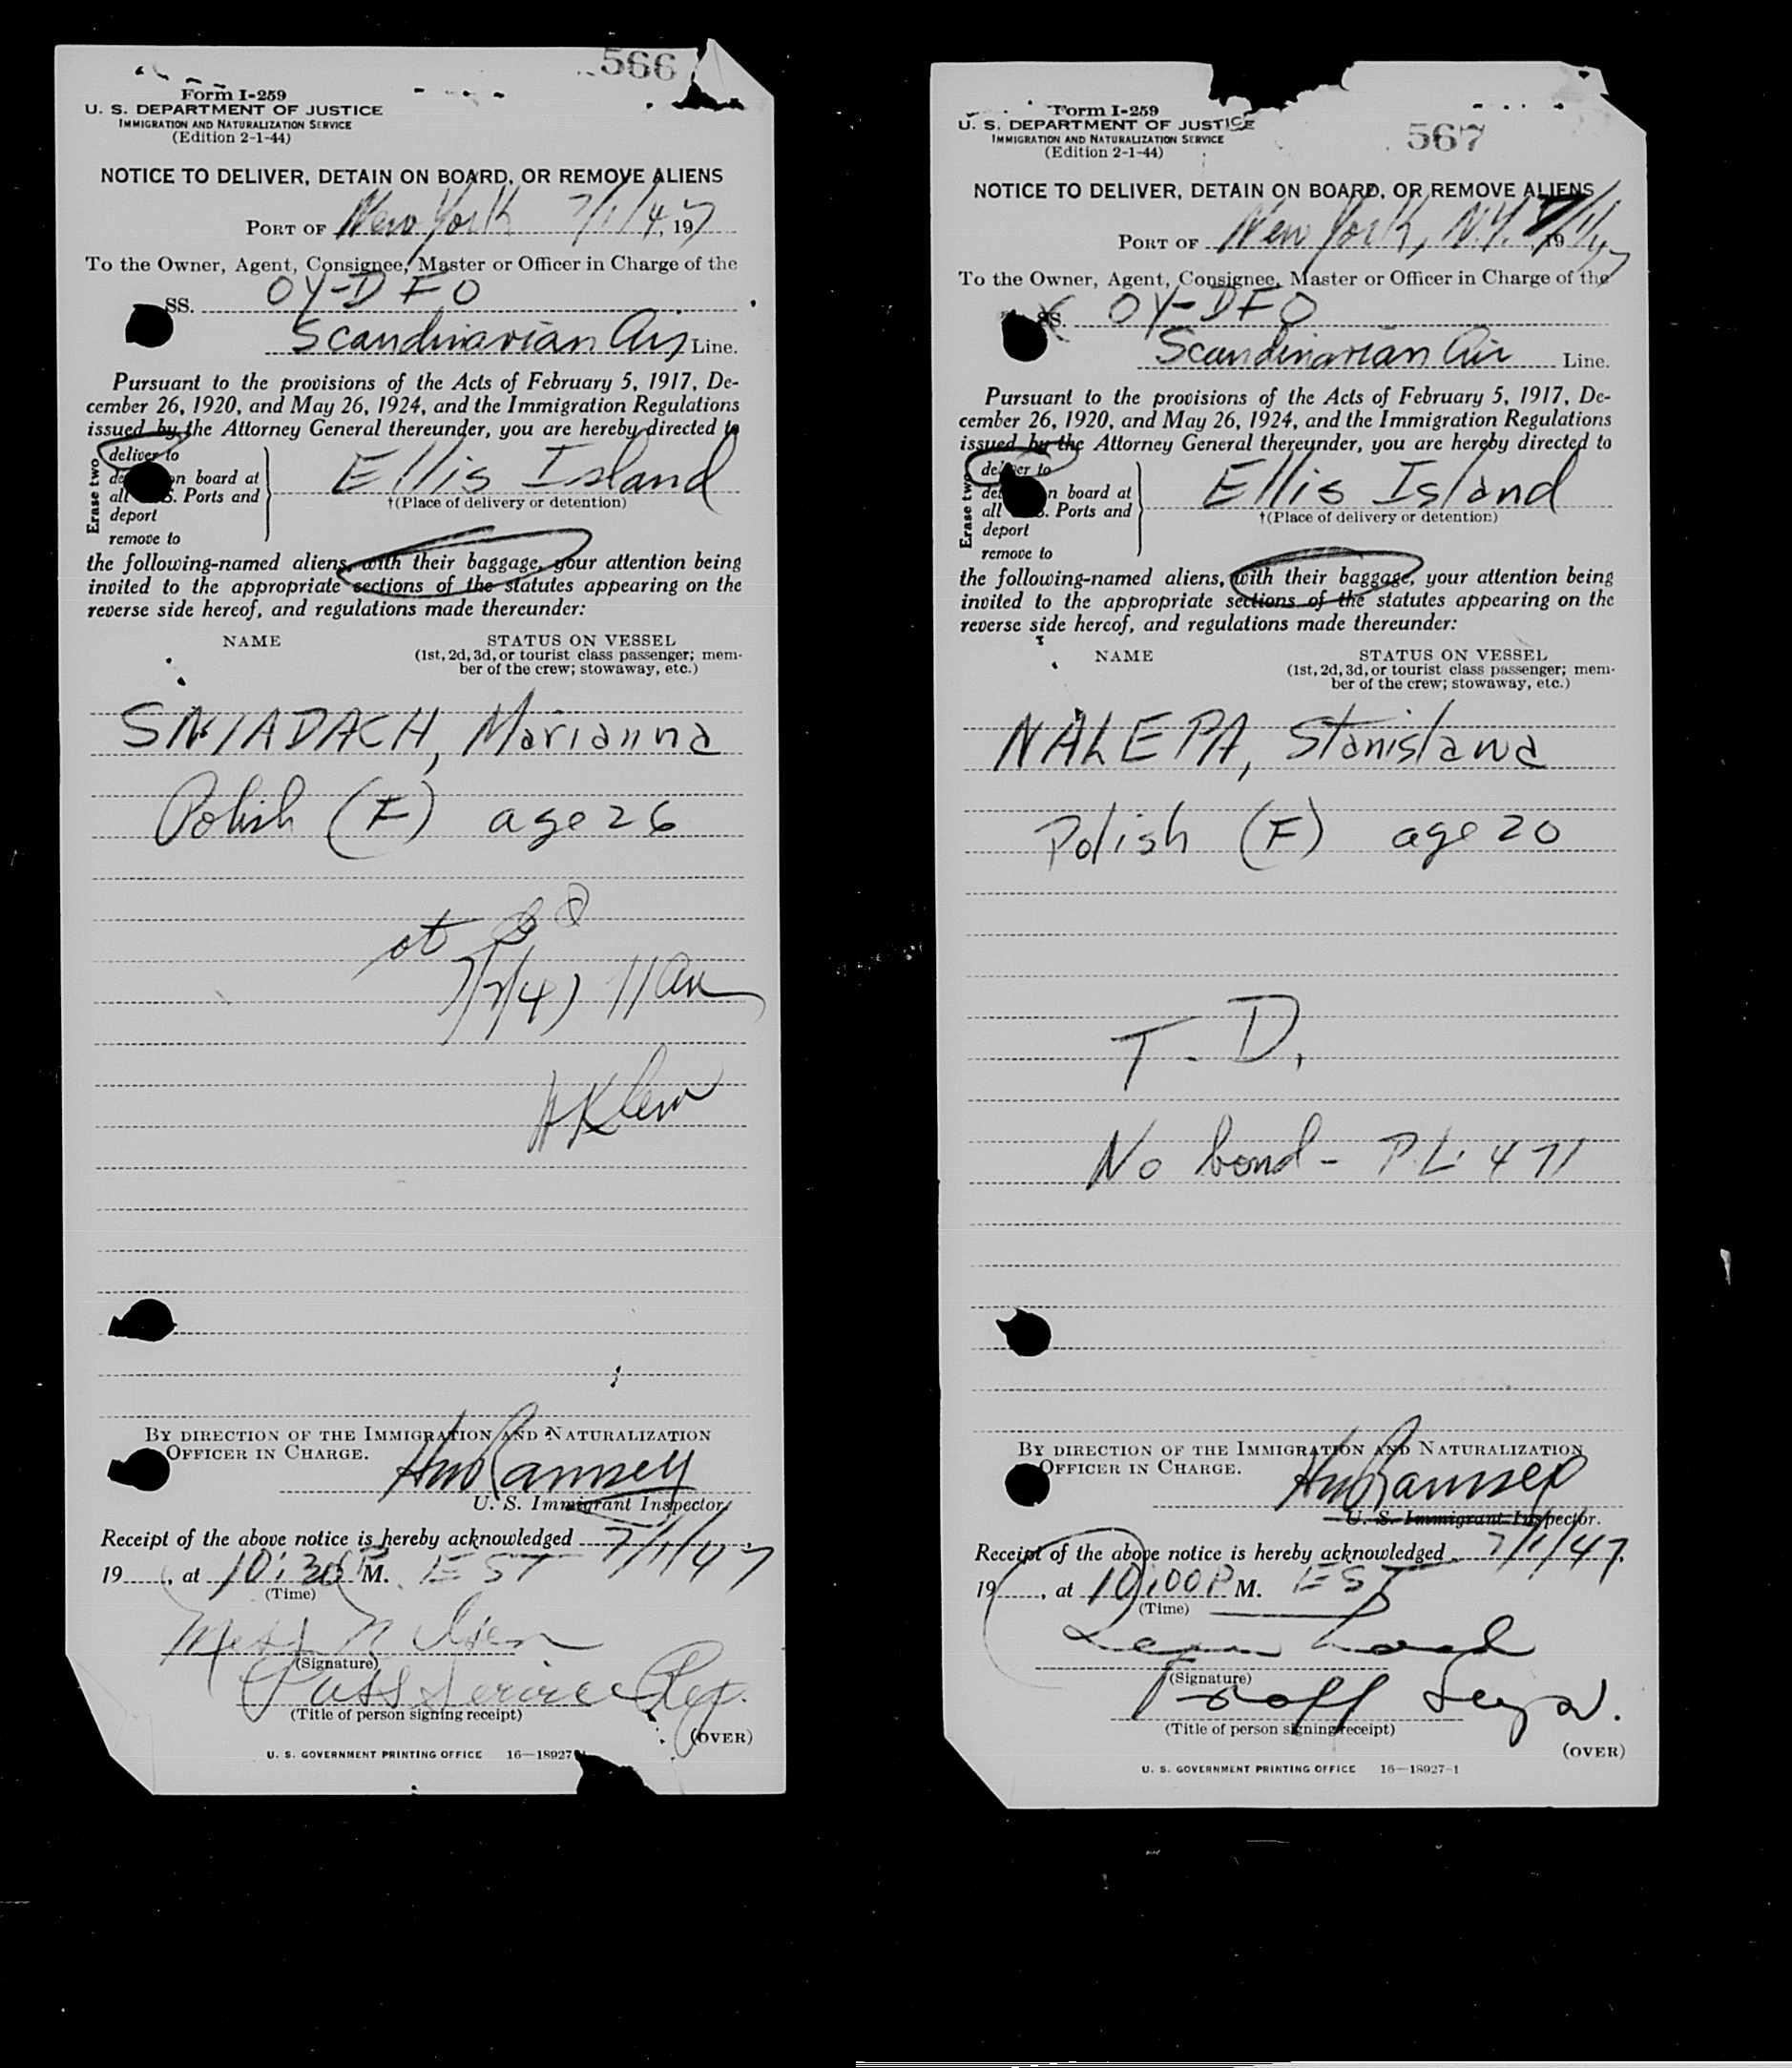 566
Form I-259
U. S. DEPARTMENT OF JUSTICE
IMMIGRATION AND NATURALIZATION SERVICE
(Edition 2-1-44)
NOTICE TO DELIVER, DETAIN ON BOARD, OR REMOVE ALIENS
PORT OF New York 7/1/4, 197
To the Owner, Agent, Consignee, Master or Officer in Charge of the
SS. OY-DFO
Scandinavian Air Line.
Pursuant to the provisions of the Acts of February 5, 1917, De-
cember 26, 1920, and May 26, 1924, and the Immigration Regulations
issued by the Attorney General thereunder, you are hereby directed to
Erase two
deliver to
on board at
all S. Ports and
deport
remove to
Ellis Island
†(Place of delivery or detention)
the following-named aliens, with their baggage, your attention being
invited to the appropriate sections of the statutes appearing on the
reverse side hereof, and regulations made thereunder:
NAME STATUS ON VESSEL
(1st, 2d, 3d, or tourist class passenger; mem-
ber of the crew; stowaway, etc.)
SNIADACH, Marianna
Polish (F) age 26
at
7/2/47 11 am
H Klein
BY DIRECTION OF THE IMMIGRATION AND NATURALIZATION
OFFICER IN CHARGE.
U. S. Immigrant Inspector
Receipt of the above notice is hereby acknowledged 7/1/47
19, at 10:30 P M. EST
(Time)
(Signature)
Pass Service Rep.
(Title of person signing receipt)
(OVER)
U. S. GOVERNMENT PRINTING OFFICE 16—18927
Form I-259
567
U. S. DEPARTMENT OF JUSTICE
IMMIGRATION AND NATURALIZATION SERVICE
(Edition 2-1-44)
NOTICE TO DELIVER, DETAIN ON BOARD, OR REMOVE ALIENS
PORT OF New York, N.Y. 7/1/47 19
To the Owner, Agent, Consignee, Master or Officer in Charge of the
SS. OY-DFO
Scandinavian Air Line.
Pursuant to the provisions of the Acts of February 5, 1917, De-
cember 26, 1920, and May 26, 1924, and the Immigration Regulations
issued by the Attorney General thereunder, you are hereby directed to
Erase two
deliver to
on board at
all S. Ports and
deport
remove to
Ellis Island
†(Place of delivery or detention)
the following-named aliens, with their baggage, your attention being
invited to the appropriate sections of the statutes appearing on the
reverse side hereof, and regulations made thereunder:
NAME STATUS ON VESSEL
(1st, 2d, 3d, or tourist class passenger; mem-
ber of the crew; stowaway, etc.)
NALEPA, Stanislawa
Polish (F) age 20
T. D.
No bond - P.L. 471
BY DIRECTION OF THE IMMIGRATION AND NATURALIZATION
OFFICER IN CHARGE.
U. S. Immigrant Inspector.
Receipt of the above notice is hereby acknowledged 7/1/47,
19, at 10:00 P M. EST
(Time)
(Signature)
(Title of person signing receipt)
(OVER)
U. S. GOVERNMENT PRINTING OFFICE 16—18927-1